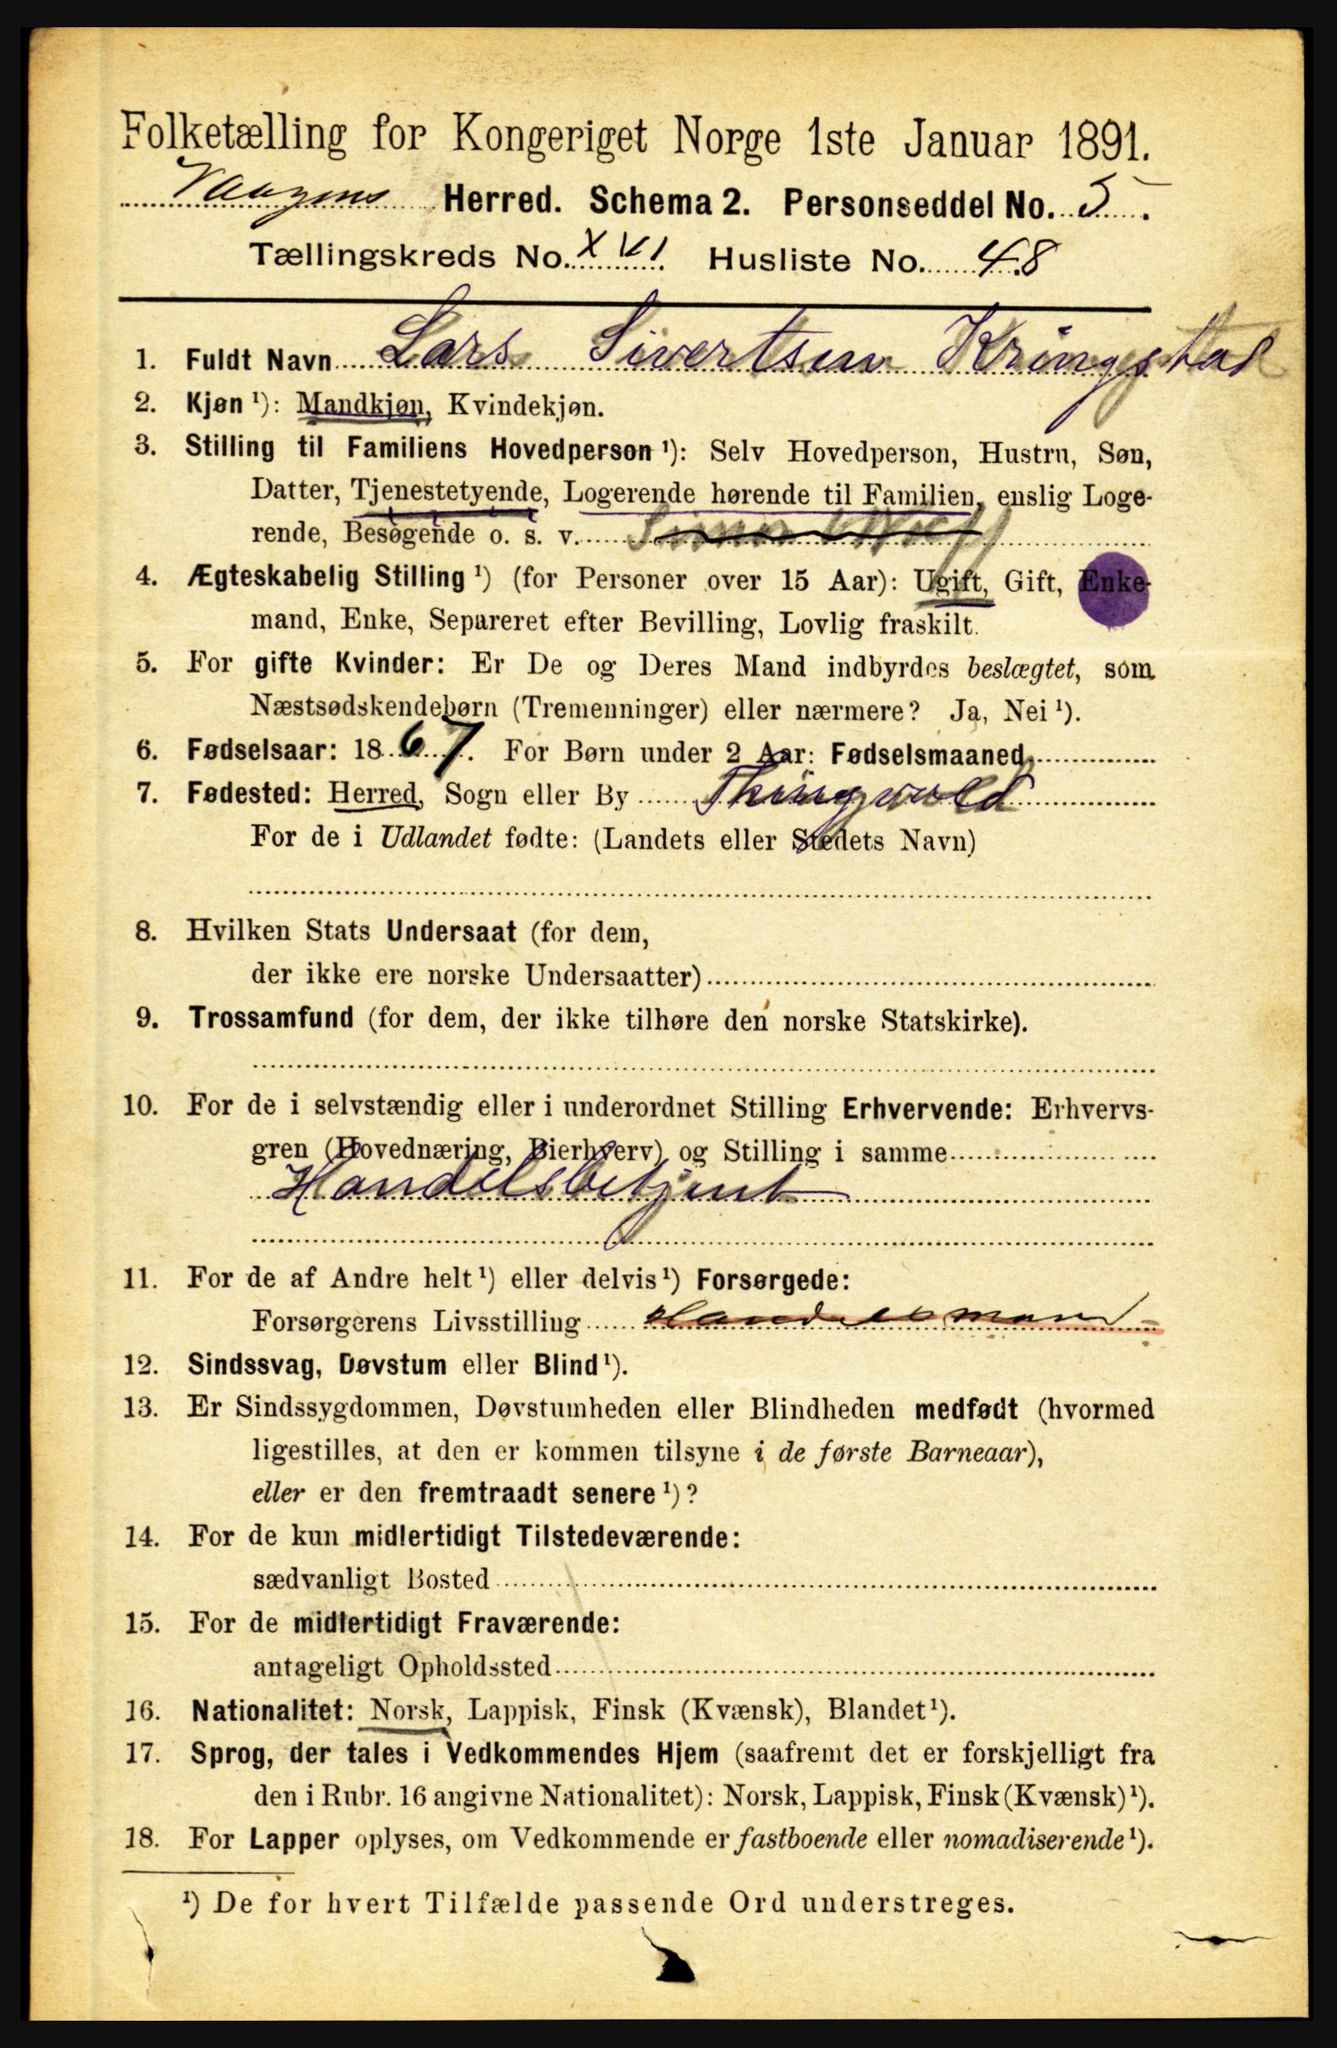 Folketælling for Kongeriget Norge 1ste Januar 1891.
Herred. Schema 2. Personseddel No. 5.
Tællingskreds No. XVI Husliste No. 48
1. Fuldt Navn Lars Sivertsen Kringstad
2. Kjøn ¹): Mandkjøn, Kvindekjøn.
3. Stilling til Familiens Hovedperson ¹): Selv Hovedperson, Hustru, Søn,
Datter, Tjenestetyende, Logerende hørende til Familien, enslig Loge-
rende, Besøgende o. s. v.
4. Ægteskabelig Stilling ¹) (for Personer over 15 Aar): Ugift, Gift, Enke-
mand, Enke, Separeret efter Bevilling, Lovlig fraskilt.
5. For gifte Kvinder: Er De og Deres Mand indbyrdes beslægtet, som
Næstsødskendebørn (Tremenninger) eller nærmere? Ja, Nei ¹).
6. Fødselsaar: 1867. For Børn under 2 Aar: Fødselsmaaned
7. Fødested: Herred, Sogn eller By Thingvold
For de i Udlandet fødte: (Landets eller Stedets Navn)
8. Hvilken Stats Undersaat (for dem,
der ikke ere norske Undersaatter)
9. Trossamfund (for dem, der ikke tilhøre den norske Statskirke).
10. For de i selvstændig eller i underordnet Stilling Erhvervende: Erhvervs-
gren (Hovednæring, Bierhverv) og Stilling i samme
Handelsbetjent
11. For de af Andre helt ¹) eller delvis ¹) Forsørgede:
Forsørgerens Livsstilling Handelsmand
12. Sindssvag, Døvstum eller Blind ¹).
13. Er Sindssygdommen, Døvstumheden eller Blindheden medfødt (hvormed
ligestilles, at den er kommen tilsyne i de første Barneaar),
eller er den fremtraadt senere ¹)?
14. For de kun midlertidigt Tilstedeværende:
sædvanligt Bosted
15. For de midlertidigt Fraværende:
antageligt Opholdssted
16. Nationalitet: Norsk, Lappisk, Finsk (Kvænsk), Blandet ¹).
17. Sprog, der tales i Vedkommendes Hjem (saafremt det er forskjelligt fra
den i Rubr. 16 angivne Nationalitet): Norsk, Lappisk, Finsk (Kvænsk) ¹).
18. For Lapper oplyses, om Vedkommende er fastboende eller nomadiserende ¹).
¹) De for hvert Tilfælde passende Ord understreges.